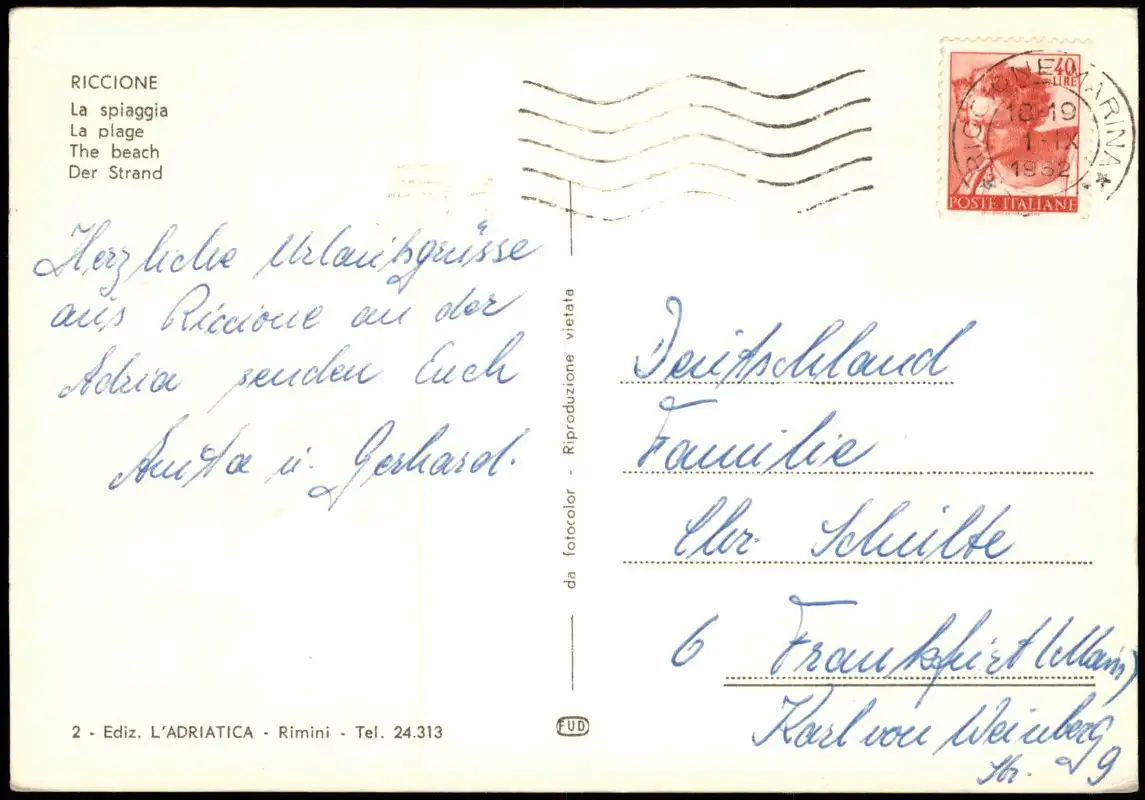 RICCIONE
La spiaggia
La plage
The beach
Der Strand
40
LIRE
POSTE ITALIANE
RICCIONE MARINA
18-19
1-IX
1962
Herzliche Urlaubsgrüsse
aus Riccione an der
Adria senden Euch
Anita u. Gerhard.
da fotocolor - Riproduzione vietata
Deutschland
Familie
Chr. Schulte
6 Frankfurt (Main)
Karl von Weinberg
Str. 9
2 - Ediz. L'ADRIATICA - Rimini - Tel. 24.313
FUD